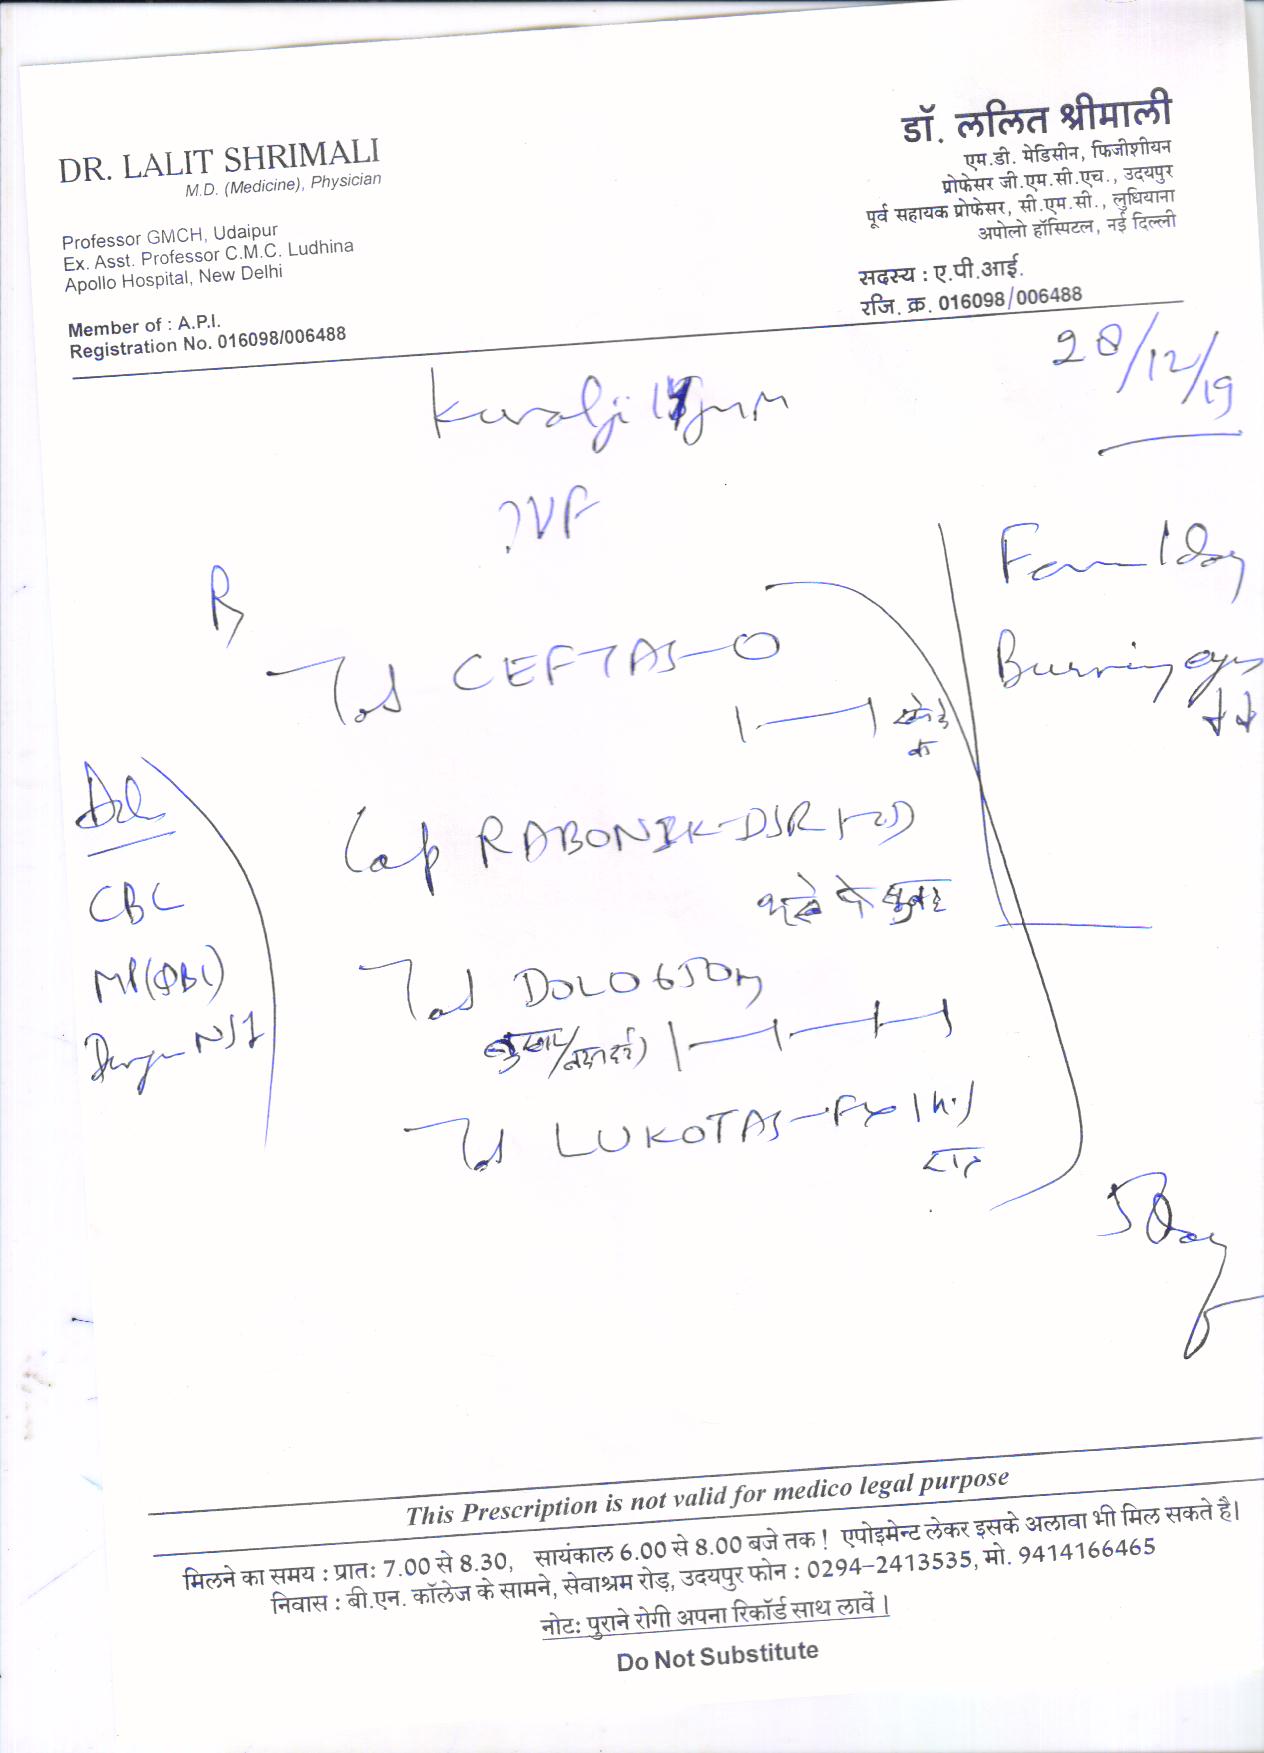 DR. LALIT SHRIMALI
M.D. (Medicine), Physician
Professor GMCH, Udaipur
Ex. Asst. Professor C.M.C. Ludhina
Apollo Hospital, New Delhi
Member of : A.P.I.
Registration No. 016098/006488
डॉ. ललित श्रीमाली
एम.डी. मेडिसीन, फिजीशीयन
प्रोफेसर जी.एम.सी.एच., उदयपुर
पूर्व सहायक प्रोफेसर, सी.एम.सी., लुधियाना
अपोलो हॉस्पिटल, नई दिल्ली
सदस्य : ए.पी.आई.
रजि. क्र. 016098/006488
28/12/19
?VF
Rx
Burning eyes
Tab CEFTAS-O
Cap RABONIK-DSR 1-OD
Tab DOLO 650mg
Tab LUKOTAS-FX
Adv
CBC
MP(QBC)
Dengue NS1
5 Day
This Prescription is not valid for medico legal purpose
मिलने का समय : प्रातः 7.00 से 8.30, सायंकाल 6.00 से 8.00 बजे तक ! एपोइमेन्ट लेकर इसके अलावा भी मिल सकते है।
निवास : बी.एन. कॉलेज के सामने, सेवाश्रम रोड़, उदयपुर फोन : 0294-2413535, मो. 9414166465
नोटः पुराने रोगी अपना रिकॉर्ड साथ लावें ।
Do Not Substitute